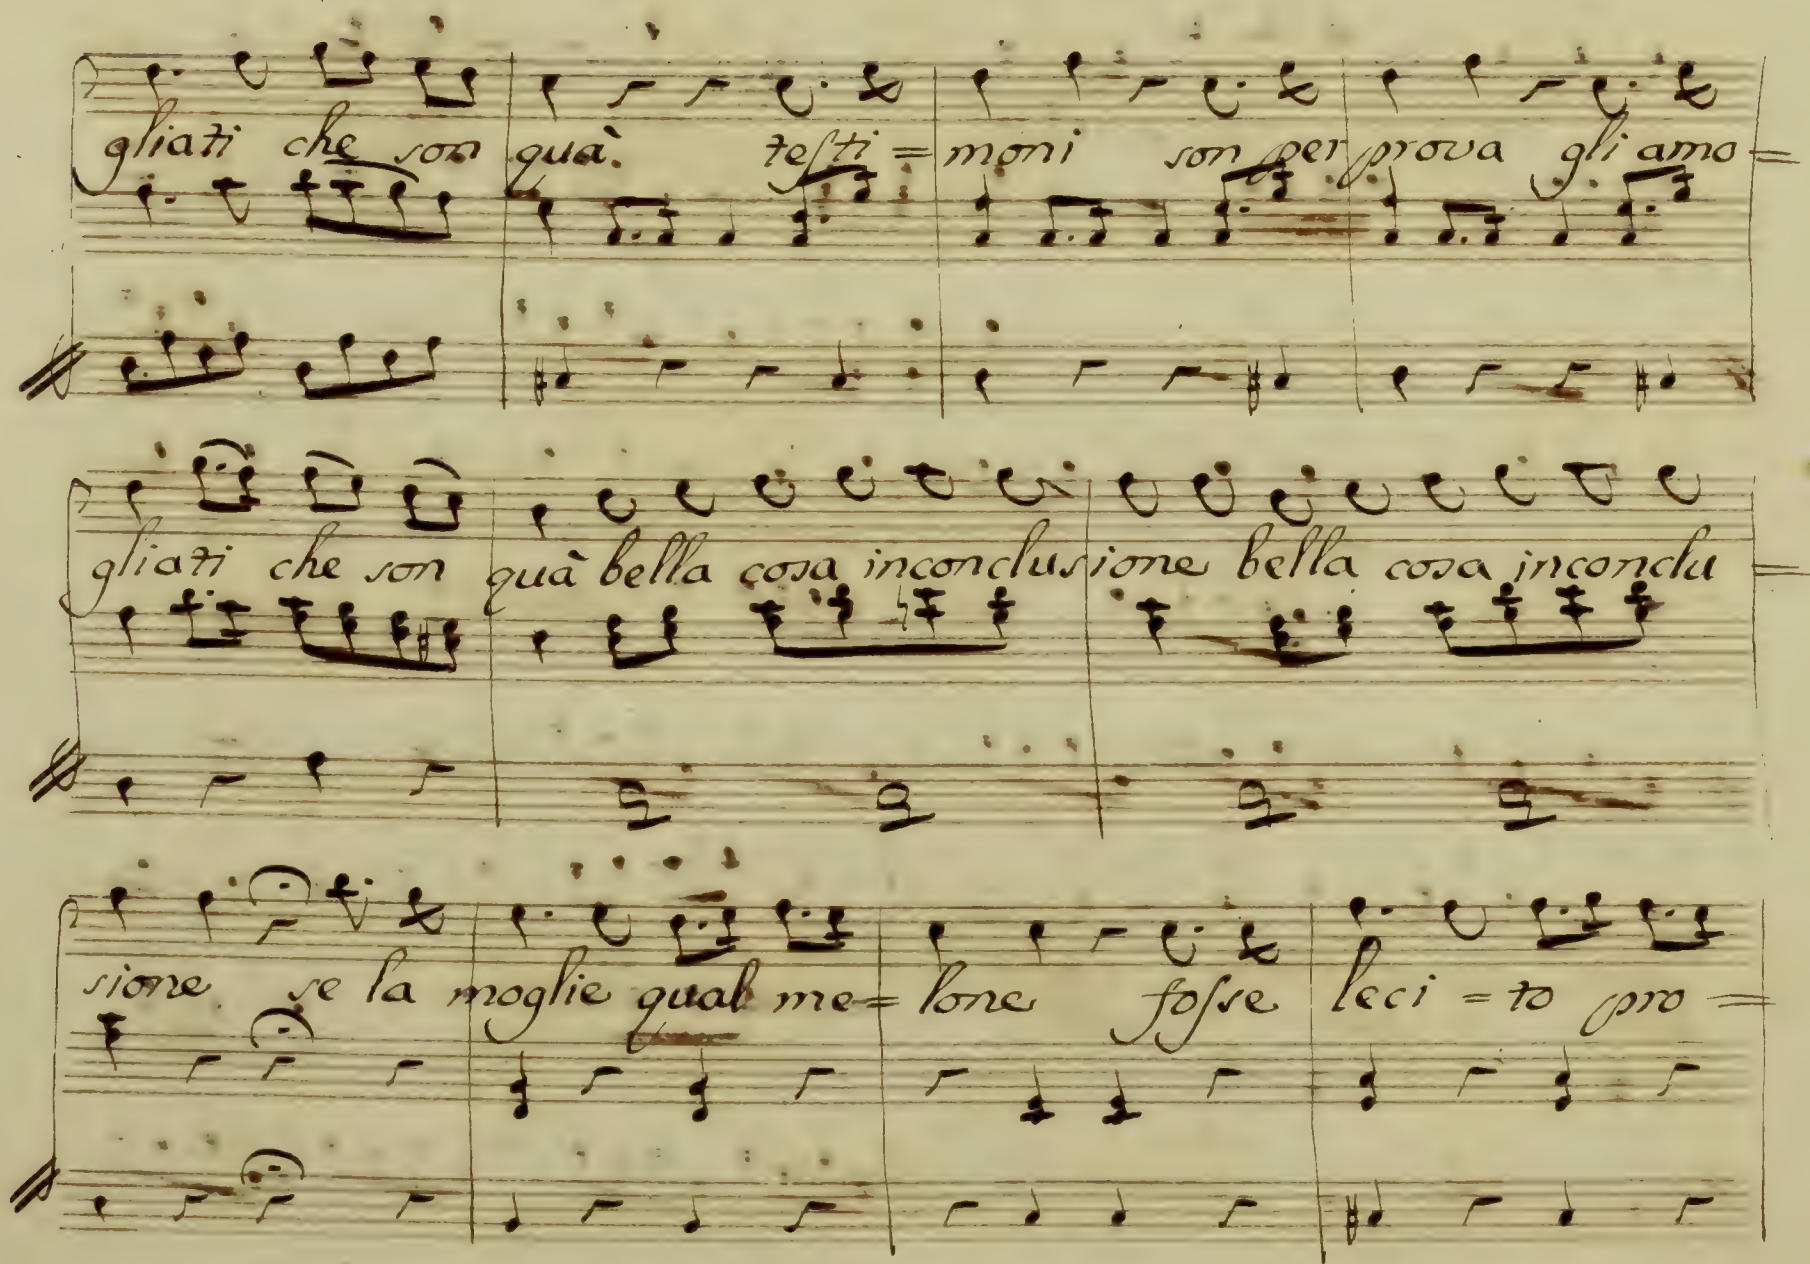 gliati che son quà. testi = moni son per prova gli amo =
gliati che son quà bella cosa inconclusione bella cosa inconclu =
sione se la moglie qual me = lone fosse leci = to pro =